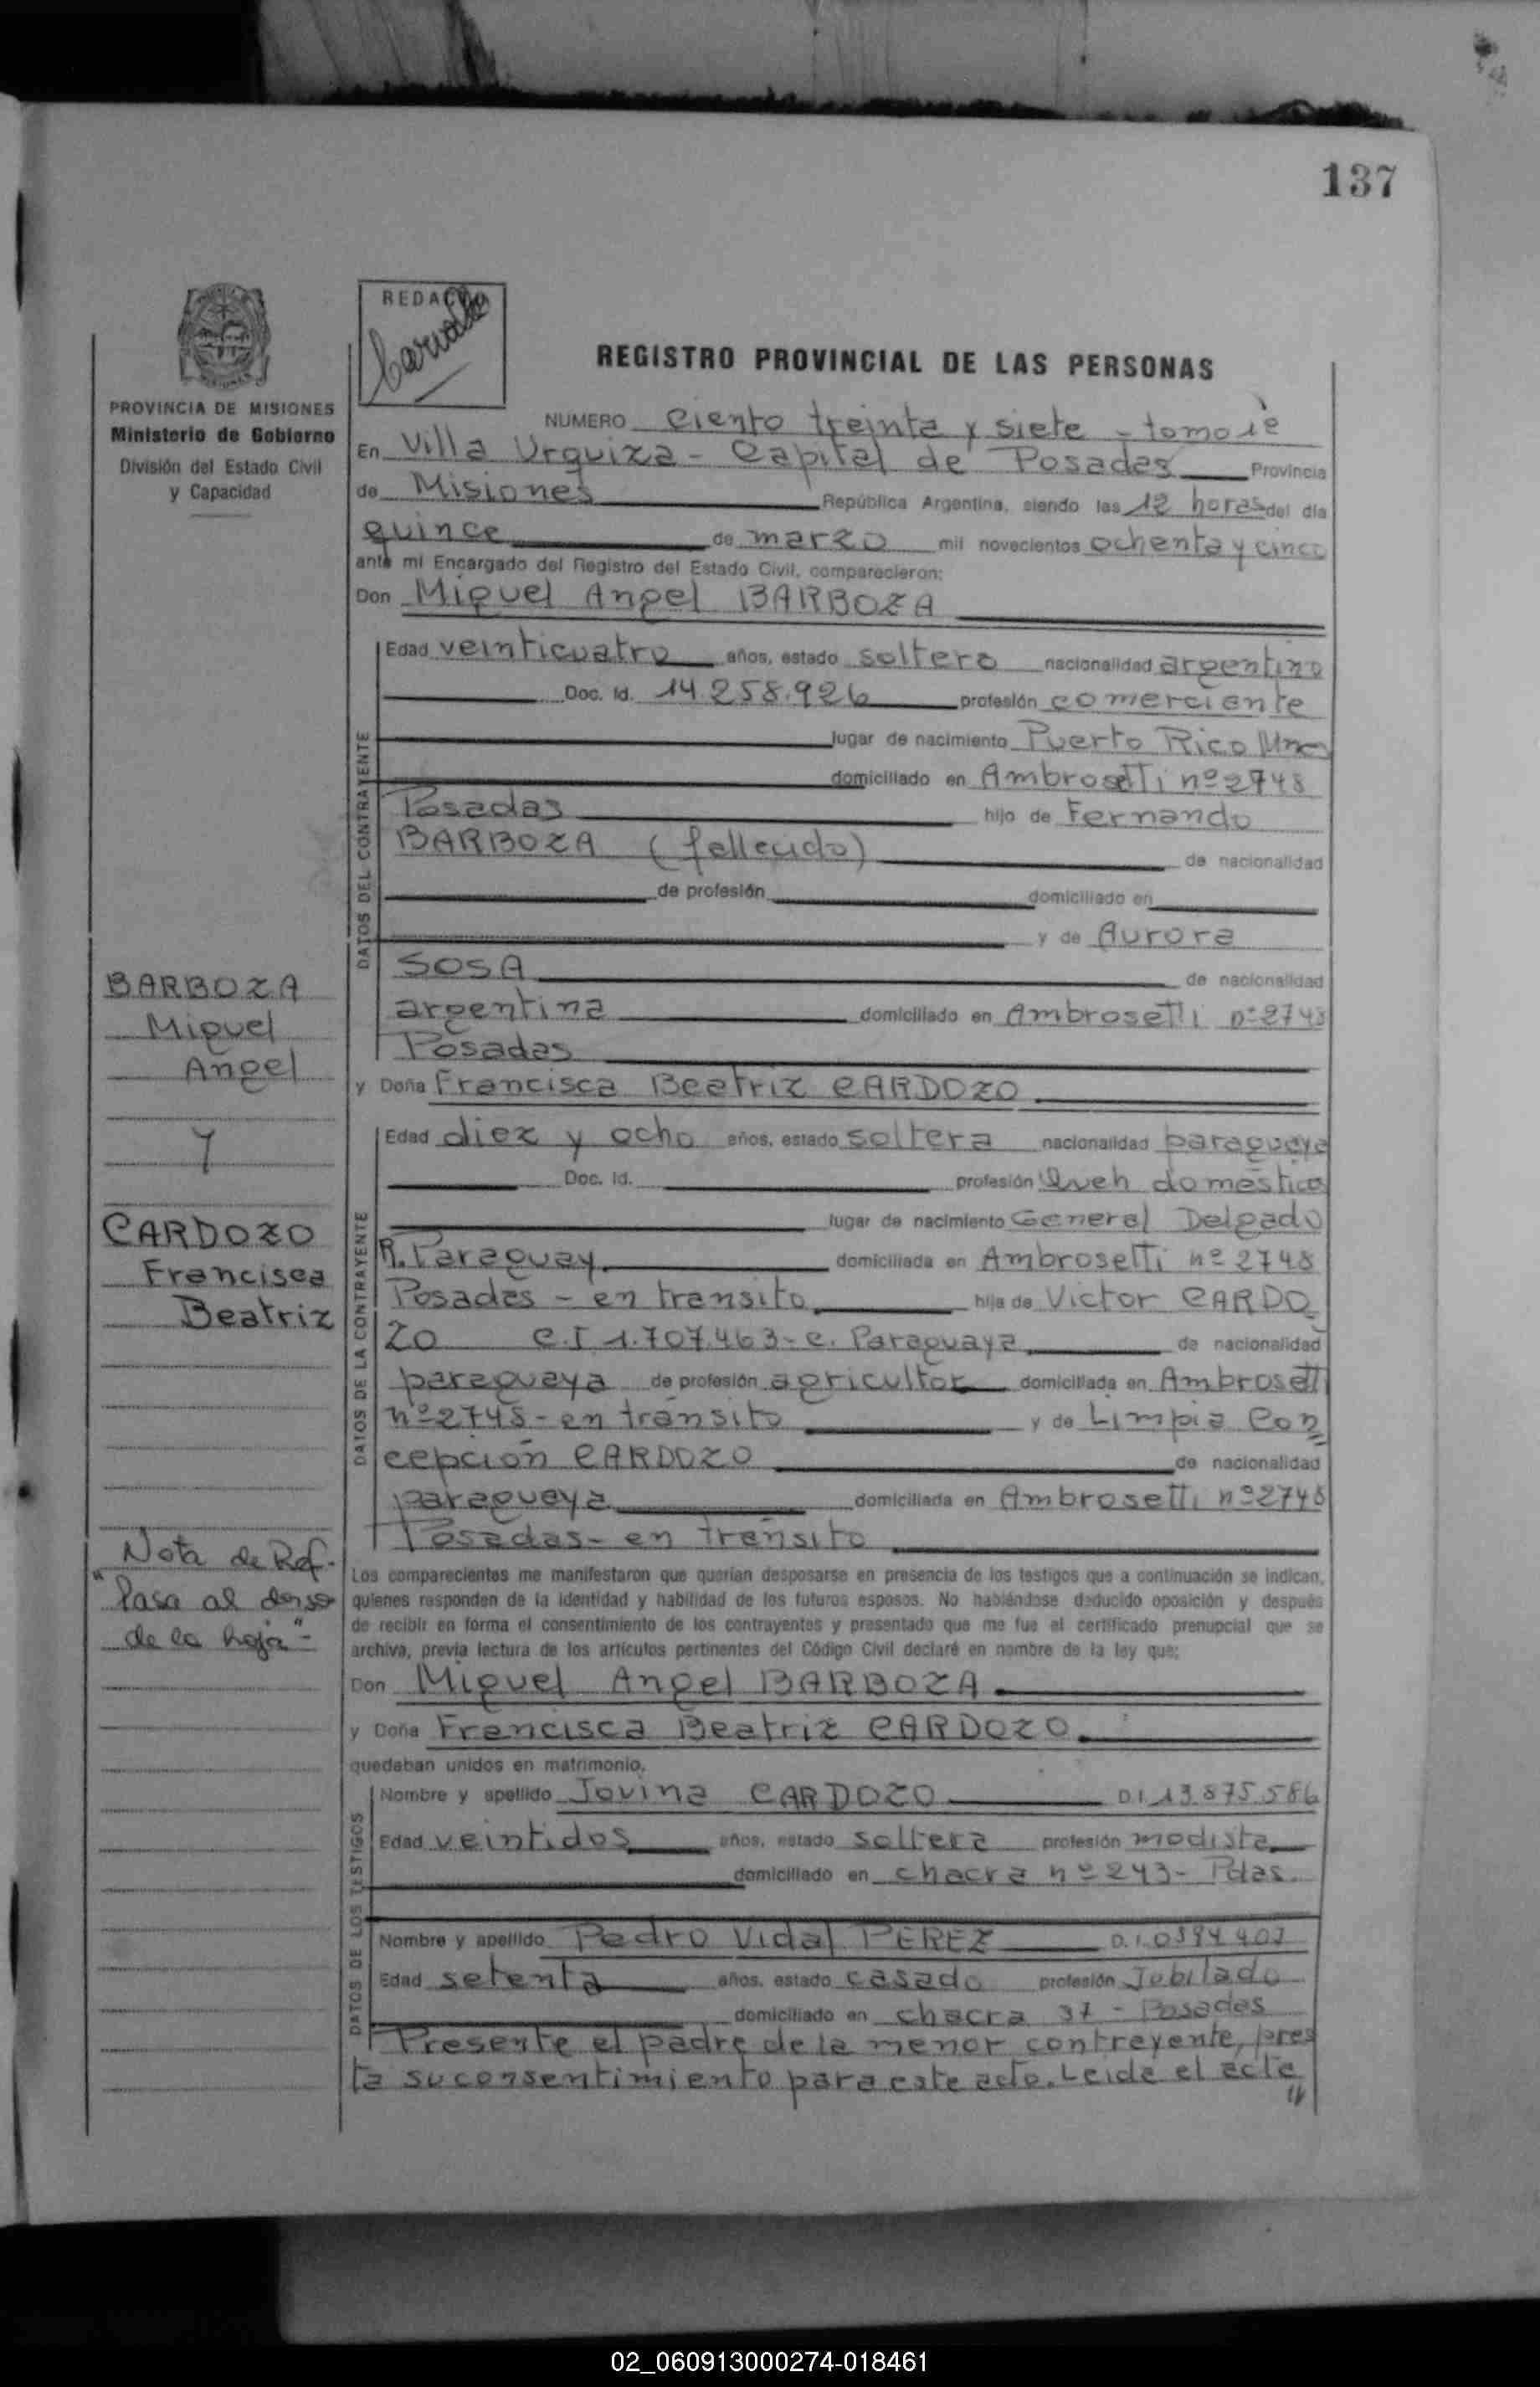 137
REDAC
Carvallo
PROVINCIA DE MISIONES
Ministerio de Gobierno
División del Estado Civil
y Capacidad
REGISTRO PROVINCIAL DE LAS PERSONAS
NUMERO Ciento treinta y siete - tomo 1º
En Villa Urquiza - Capital de Posadas Provincia
de Misiones República Argentina, siendo las 12 horas del día
quince de marzo mil novecientos ochenta y cinco
ante mi Encargado del Registro del Estado Civil, comparecieron:
Don Miguel Angel BARBOZA
DATOS DEL CONTRAYENTE
Edad veinticuatro años, estado soltero nacionalidad argentino
Doc. Id. 14.258.926 profesión comerciante
lugar de nacimiento Puerto Rico Mnes
domiciliado en Ambrosetti nº 2748
Posadas hijo de Fernando
BARBOZA (fallecido) de nacionalidad
de profesión domiciliado en
y de Aurora
SOSA de nacionalidad
argentina domiciliado en Ambrosetti nº 2748
Posadas
y Doña Francisca Beatriz CARDOZO
DATOS DE LA CONTRAYENTE
Edad diez y ocho años, estado soltera nacionalidad paraguaya
Doc. Id. profesión Queh domestico
lugar de nacimiento General Delgado
R. Paraguay domiciliada en Ambrosetti nº 2748
Posadas - en transito hija de Victor CARDO
ZO C.I 1.707.463 - c. Paraguaya de nacionalidad
paraguaya de profesión agricultor domiciliada en Ambrosetti
nº 2748 - en tránsito y de Limpia Con
cepción CARDOZO de nacionalidad
paraguaya domiciliada en Ambrosetti nº 2748
Posadas - en tránsito
BARBOZA
Miguel
Angel
Y
CARDOZO
Francisca
Beatriz
Nota de Ref.
"Pasa al dorso
de la hoja" -
Los comparecientes me manifestaron que querían desposarse en presencia de los testigos que a continuación se indican,
quienes responden de la identidad y habilidad de los futuros esposos. No habiéndose deducido oposición y después
de recibir en forma el consentimiento de los contrayentes y presentado que me fue el certificado prenupcial que se
archiva, previa lectura de los artículos pertinentes del Código Civil declaré en nombre de la ley que;
Don Miguel Angel BARBOZA
y Doña Francisca Beatriz CARDOZO
quedaban unidos en matrimonio.
DATOS DE LOS TESTIGOS
Nombre y apellido Jovina CARDOZO D.I. 13.875.586
Edad veintidos años, estado soltera profesión modista
domiciliado en chacra nº 243 - Pdas.
Nombre y apellido Pedro Vidal PEREZ D.I.
Edad setenta años, estado casado profesión Jubilado
domiciliado en chacra 37 - Posadas
Presente el padre de la menor contrayente, pres
ta su consentimiento para este acto. Leida el acta
02_060913000274-018461